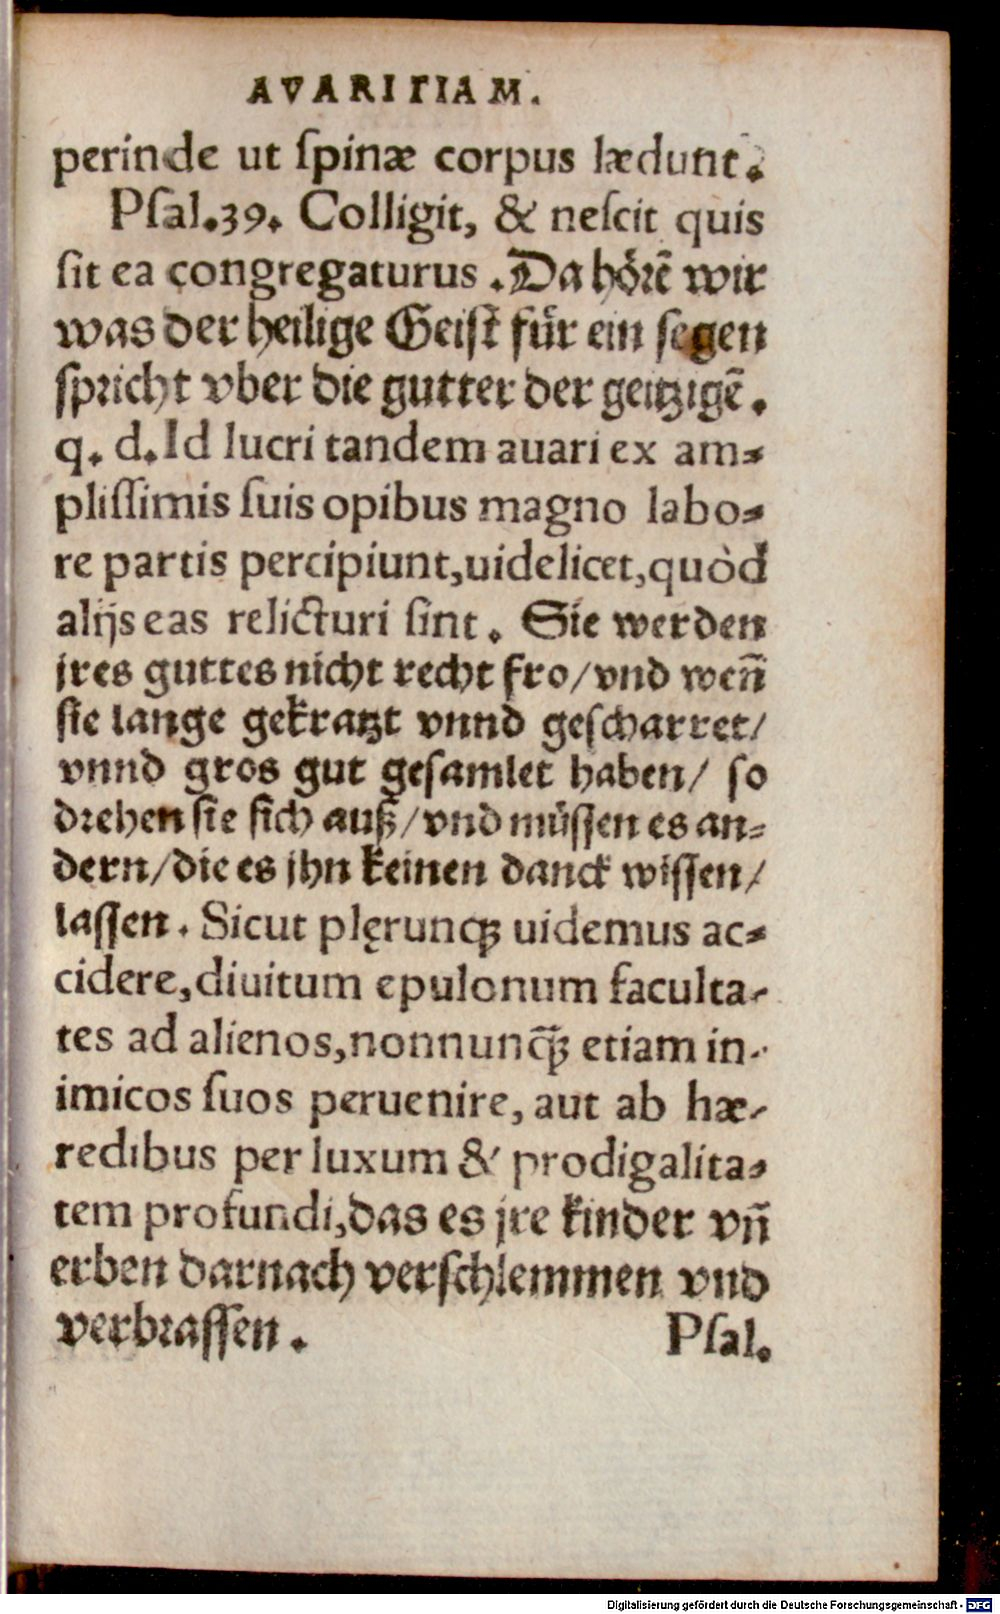 AVARITIAM.
perinde ut ſpinæ corpus lædunt.
Pſal.39. Colligit, & neſcit quis
ſit ea congregaturus. Da hörē wir
was der heilige Geiſt für ein ſegen
ſpricht vber die gutter der geitzigē.
q. d. Id lucri tandem auari ex am-
pliſſimis ſuis opibus magno labo-
re partis percipiunt, uidelicet, quòd
alijs eas relicturi ſint. Sie werden
jres guttes nicht recht fro/ vnd weñ
ſie lange gekratzt vnnd geſcharret/
vnnd gros gut geſamlet haben/ ſo
drehen ſie ſich auß/ vnd müſſen es an-
dern/ die es jhn keinen danck wiſſen/
laſſen. Sicut plęrunqꝫ uidemus ac-
cidere, diuitum epulonum faculta-
tes ad alienos, nonnunq̃ꝫ etiam in-
imicos ſuos peruenire, aut ab hæ-
redibus per luxum & prodigalita-
tem profundi, das es jre kinder vñ
erben darnach verſchlemmen vnd
verbraſſen. Pſal.
Digitalisierung gefördert durch die Deutsche Forschungsgemeinschaft - DFG